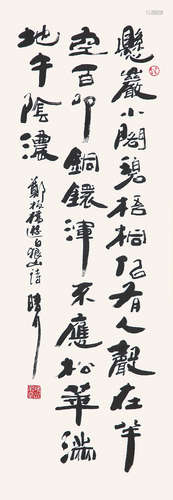 懸巖小閣碧梧桐似有人聲在半
空百叩銅鐶渾不應松華滿
地午陰濃
鄭板橋遊白狼山詩